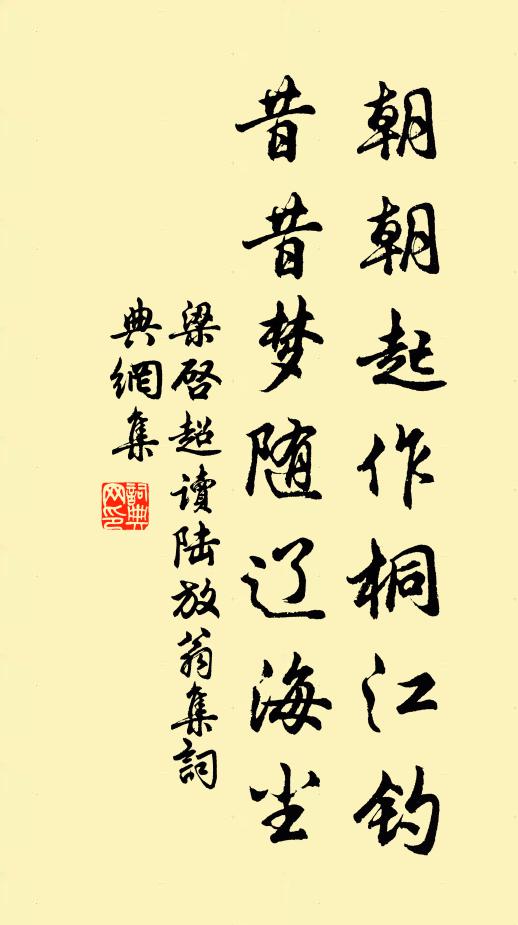 朝朝起作桐江钓
昔昔梦随辽海尘
梁启超读陆放翁集词
典網集
詞典網印